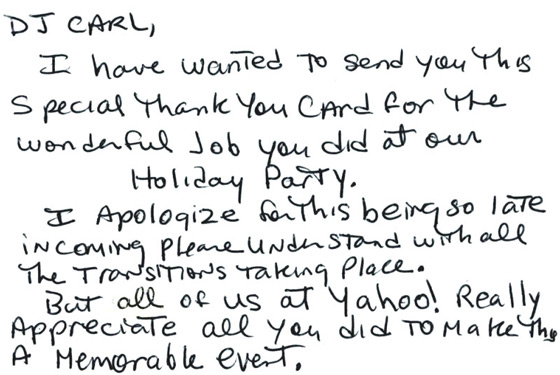 DJ CARL,
I have wanted to send you this
Special Thank You Card for the
wonderful Job you did at our
Holiday Party.
I Apologize for this being so late
incoming please understand with all
The Transitions Taking Place.
But all of us at Yahoo! Really
Appreciate all you did To Make This
A Memorable event.